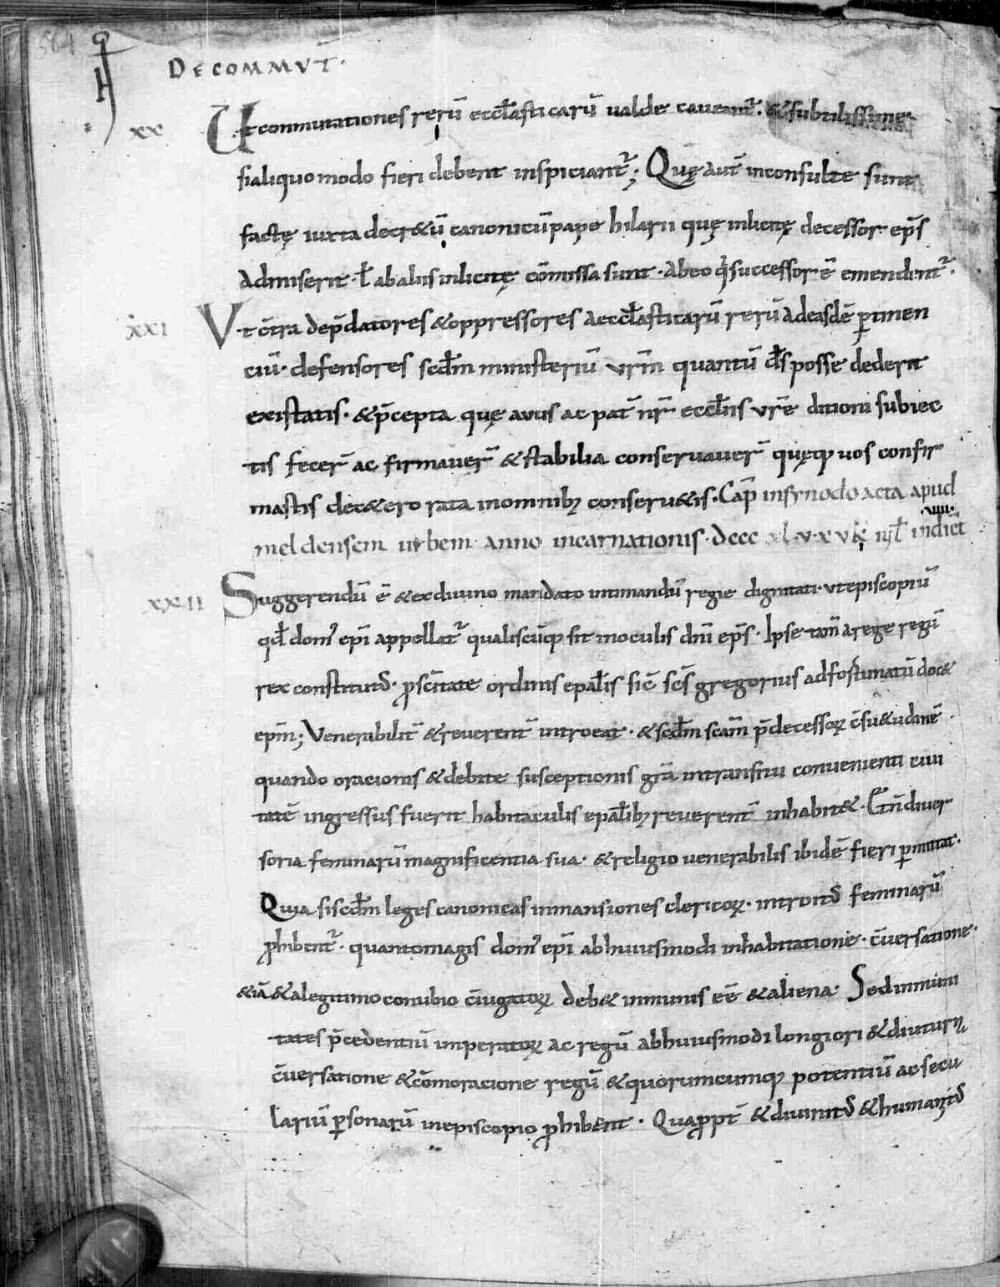 561
DE COMMUT̄·
xx Ut conmutationes rerū eccl̄asticarū ualde caueant᷑. &subtilissime
si aliquo modo fieri debent inspiciant᷑; Quę aut̄ inconsulte sunt
factę iuxta decr&ū canonicū pape hilarii quę inlicitę decessor ep̄s
admiserit· ł ab aliis inlicitę cōmissa sunt· Ab eo q̄ successor ē emendent᷑.
xxi Vt c̄tra dep̄datores &oppressores aeccl̄asticarū rerū ad easdē ptinen
ciū· defensores scd̄m ministeriū vr̄m quantū d̄s posse dederit
existatis· &p̄cepta quę auus ac pat̄ nr̄ eccl̄iis vr̄e ditioni subiec
tis fecer̄ ac firmauer̄ &stabilia conseruauer̄ quęq; uos confir
mastis de c&ero rata in omnib; conseru&is· Cap̄ in synodo acta apud
meldensem urbem anno incarnationis· dccc xl·v·xv k iul̄ indict̄ viii·
xxii Suggerendū ē &ex diuino mandato intimandū regie dignitati· ut episcopiū
qd̄ dom᾽ ep̄i appellat᷑ qualiscūq; sit in oculis dn̄i ep̄s· Ipse tam̄ a rege regū
rex constituit᷑· p sc̄itate ordinis ep̄alis sic̄ sc̄s gregorius ad fortunatū doc&
ep̄m; Venerabilit̄ &reuerent̄ introeat· &scd̄m scām p̄decessoꝝ c̄su&udinē·
quando oracionis &debite susceptionis grā in transitu conuenienti ciui
tatē ingressus fuerit habitaculis ep̄alib; reuerent̄ inhabit&· Et n̄ diuer
soria feminarū magnificentia sua· &religio uenerabilis ibidē fieri pmittat·
Quia si scd̄m leges canonicas in mansiones clericoꝝ· introit᷑ feminarū
phibent᷑· quanto magis dom᾽ ep̄i ab huiusmodi inhabitatione· c̄uersatione·
&iā &a legitimo conubio c̄iugatoꝝ deb& inmunis eē &aliena· Sed inmuni
tates p̄cedentiū imperatoꝝ ac regū ab huiusmodi longiori &diuturn
c̄uersatione &cōmoracione regū &quorumcumq; potentiū ac secu
lariū psonarū in episcopio phibent· Quapropt̄ &diuinit᷑ &humanit᷑